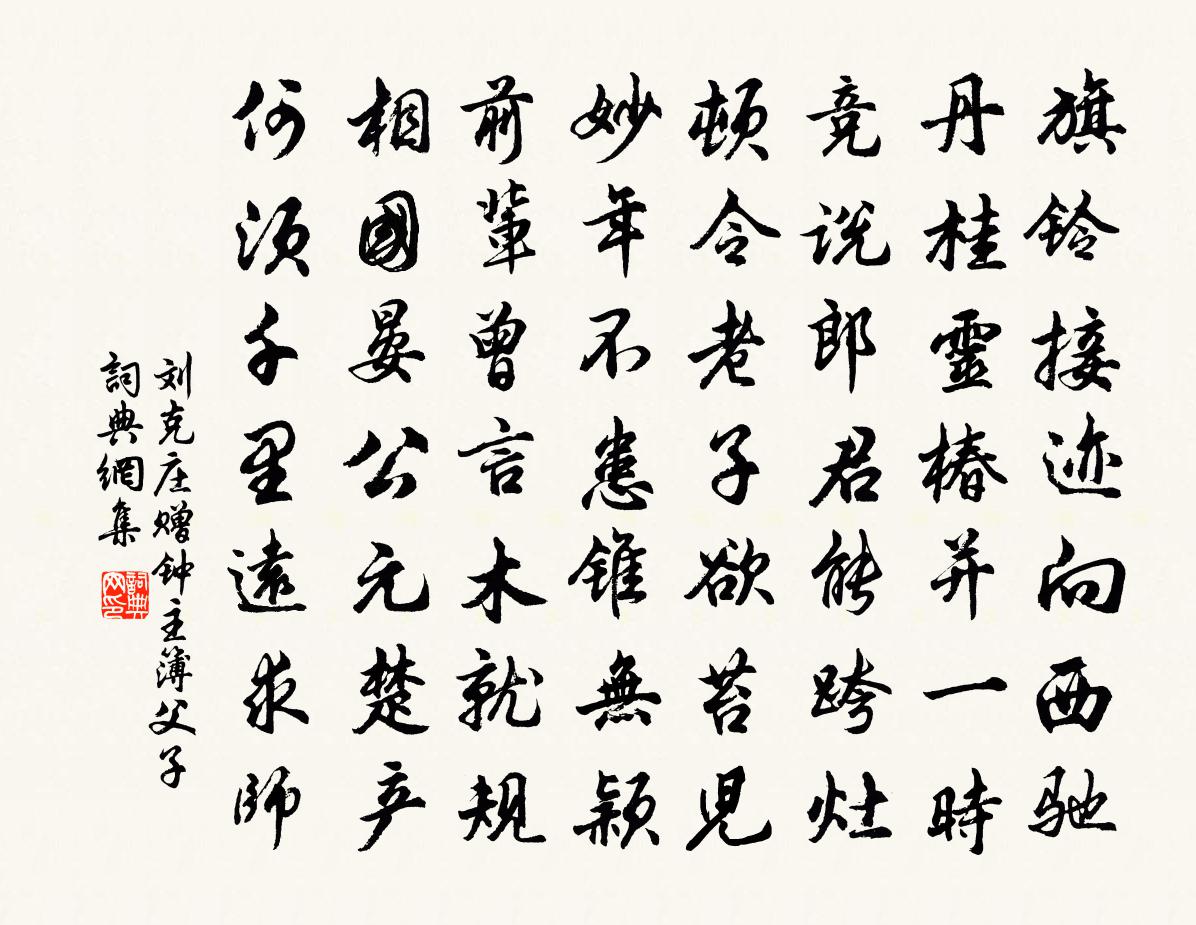 旗鈴接迹向西馳
丹桂靈椿并一時
竞説郎君能跨灶
頓令老子欲苔児
妙年不患錐無颖
前輩曾言木就規
相國晏公元楚产
何须千里遠求師
刘克庄赠钟主簿父子
詞典網集
詞典网印